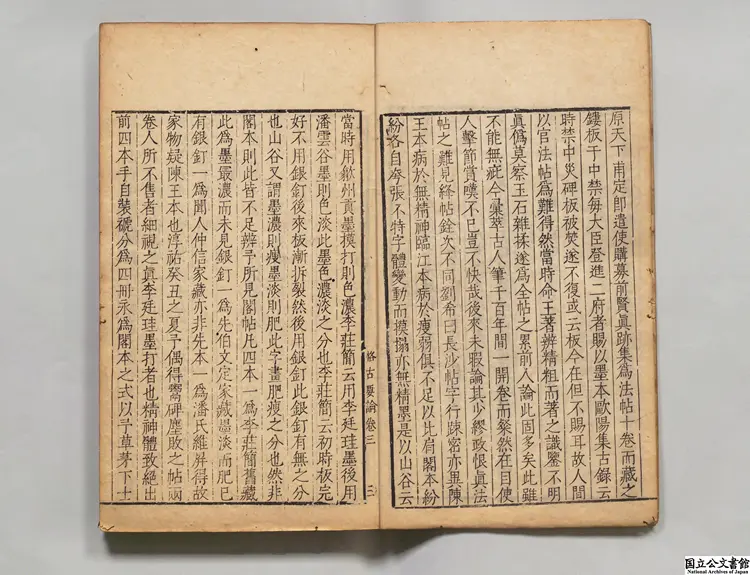 原天下甫定即遣使購募前賢眞跡集爲法帖十卷而藏之
鏤板于中禁每大臣登進二府者賜以墨本歐陽集古錄云
時禁中災碑板被焚遂不復或云板今在但不賜耳故人間
以官法帖爲難得然當時命王著辨精粗而著之識鑒不明
眞僞莫察玉石雜揉遂爲全帖之累前人論此固多矣此雖
不能無疵今彙萃古人筆千百年間一開卷而粲然在目使
人擊節賞嘆不已豈不快哉後來未暇論其少繆政恨眞法
帖之難見終帖銓次不同劉希曰長沙帖字行踈密亦異陳
王本病於無精神臨江本病於瘦弱俱不足以比肩閣本紛
紛各自夸張不特字體變動而摸搨亦無精墨是以山谷云
格古要論卷三 三
當時用歙州貢墨摸打則色濃李莊簡云用李廷珪墨後用
潘雲谷墨則色淡此墨色濃淡之分也李莊簡云初時板完
好不用銀釘後來板漸拆裂然後用銀釘此銀釘有無之分
也山谷又謂墨濃則瘦墨淡則肥此字畫肥瘦之分也然非
閣本則此皆不足辨予所見閣帖凡四本一爲李莊簡舊藏
此爲墨最濃而未見銀釘一爲先伯文定家藏墨淡而肥已
有銀釘一爲聞人仲信家藏亦非先本一爲潘氏維屏得故
家物疑陳王本也淳祐癸丑之夏予偶得鬻碑塵敗之帖兩
卷人所不售者細視之眞李廷珪墨打者也精神體致絕出
前四本手自裝褫分爲四冊永爲閣本之式以予草茅下士
国立公文書館
National Archives of Japan